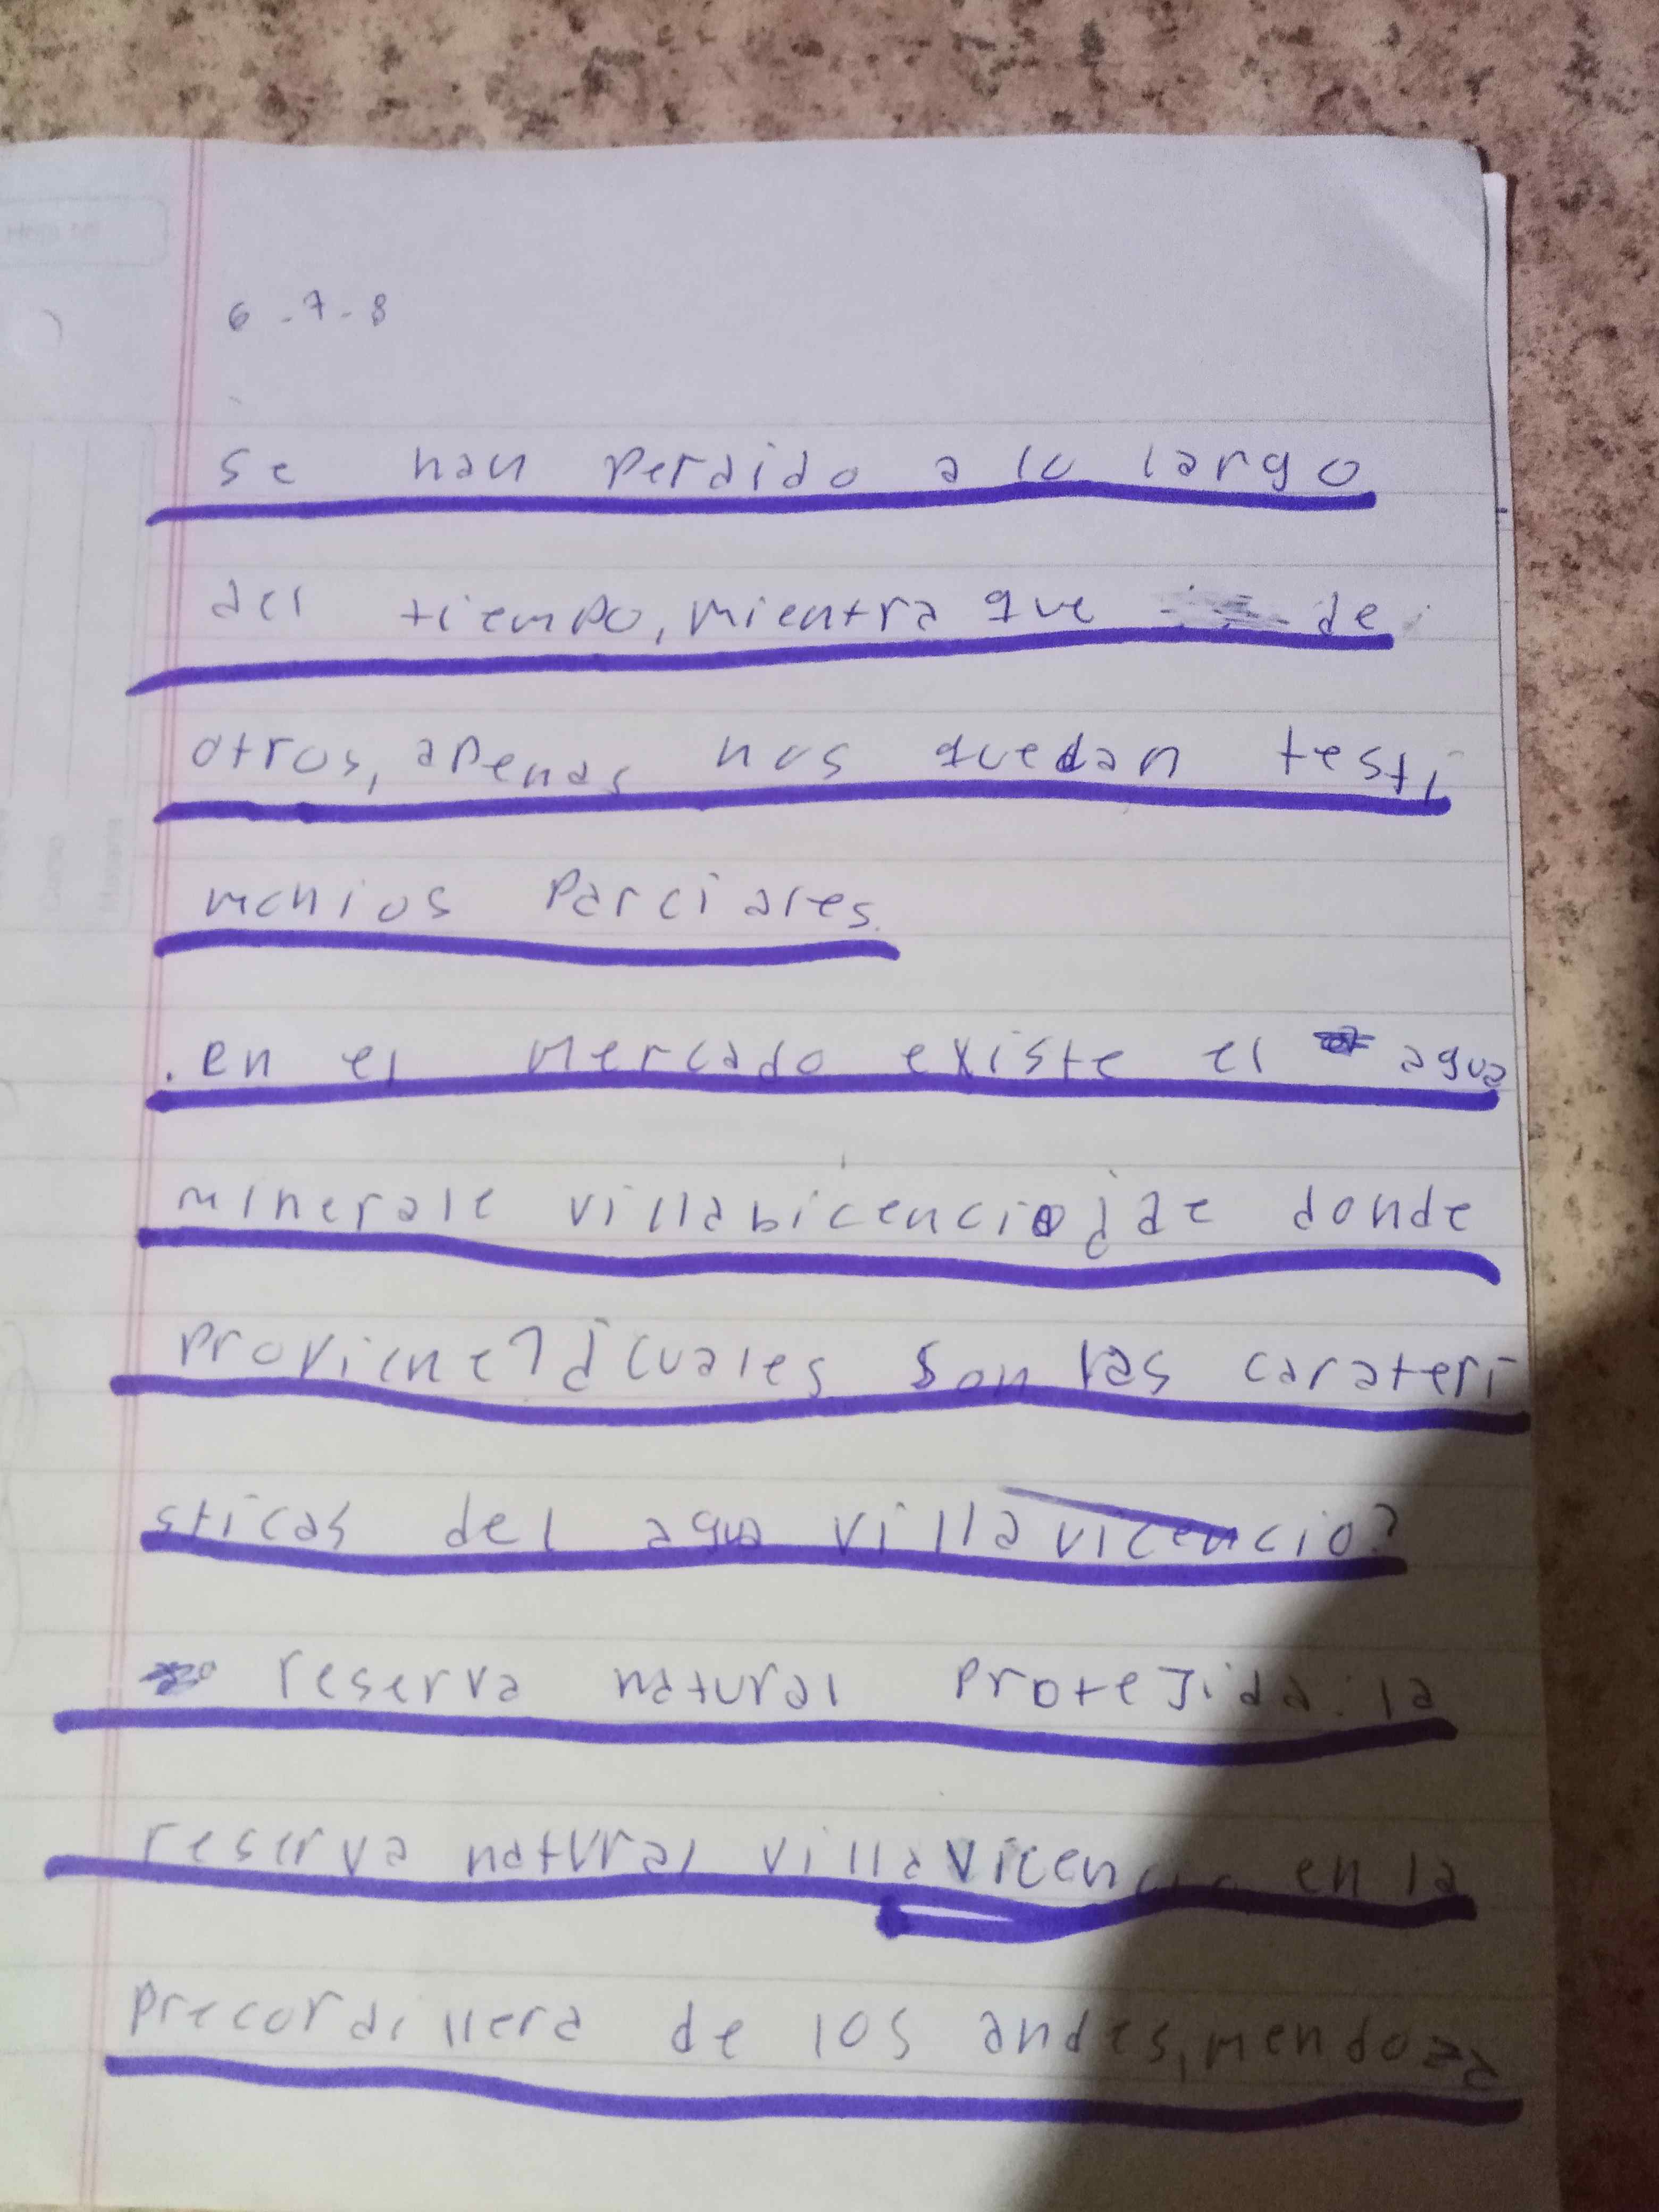 6-7-8
se han perdido a lo largo
del tiempo, mientra que de
otros, apenas nos quedan testi
monios parciales.
.en el mercado existe el agua
minerale villabicencio¿de donde
proviene?¿cuales son las carateri
sticas del agua villavicencio?
reserva natural protejida: la
reserva natural villavicencio en la
precordillera de los andes, mendoza